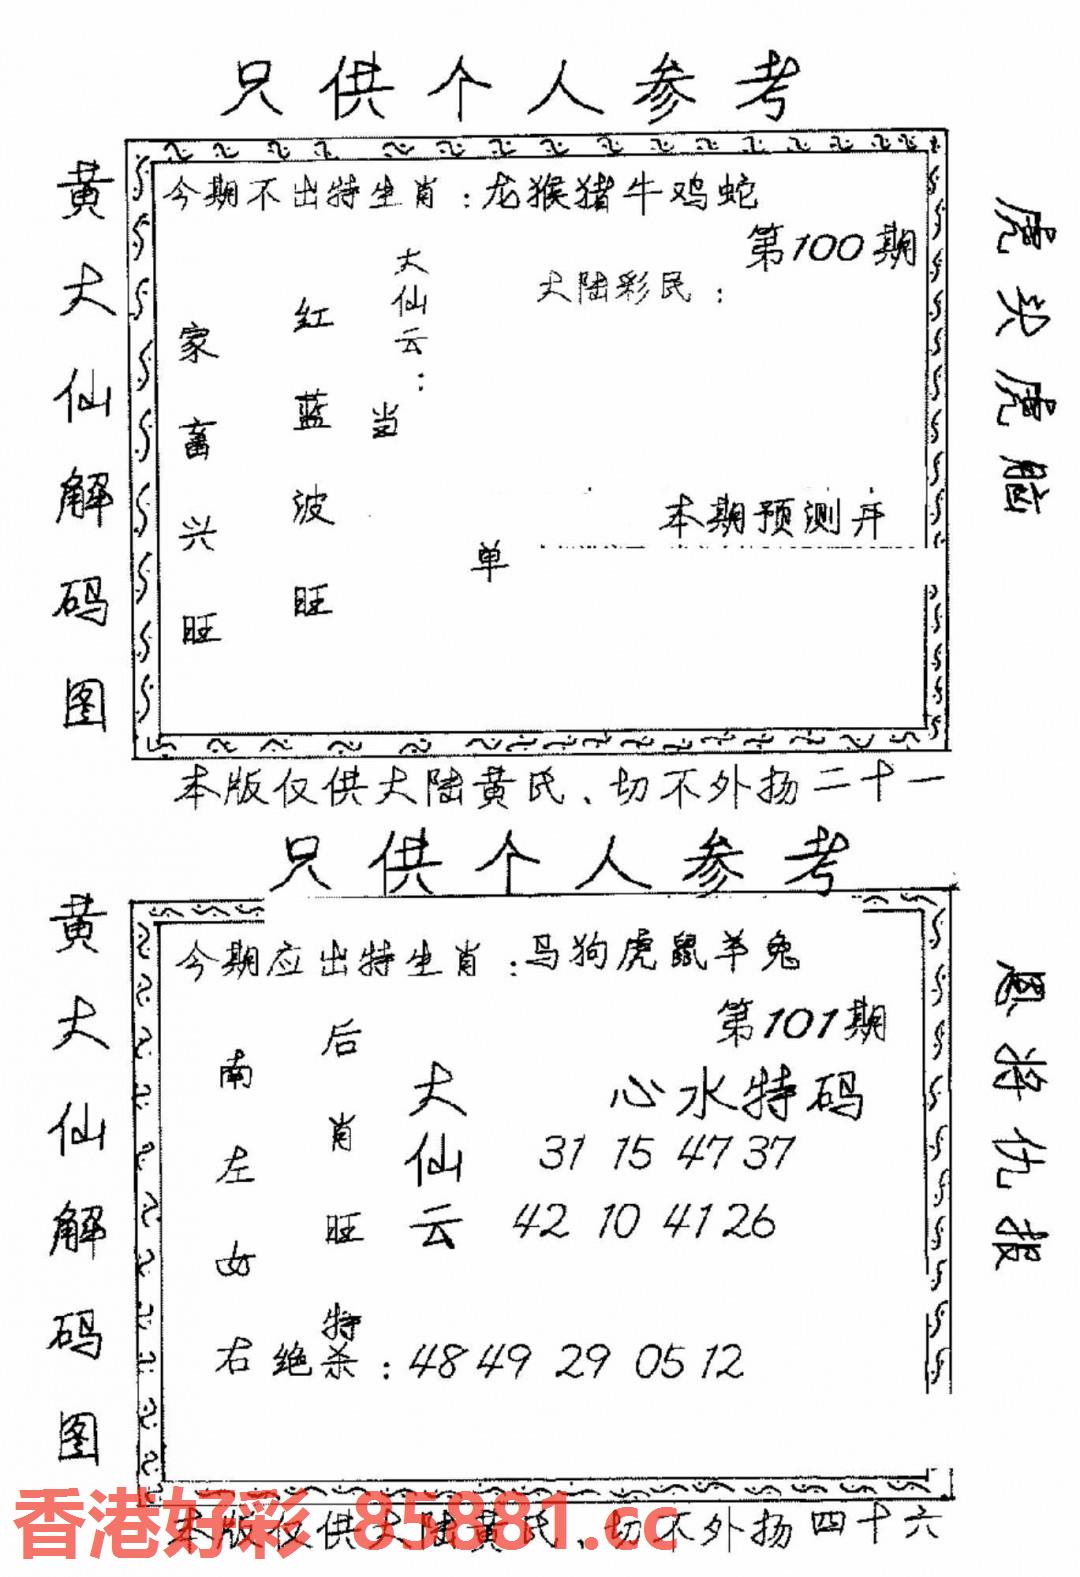 只供个人参考
黄大仙解码图
今期不出特生肖：龙猴猪牛鸡蛇
第100期
大陆彩民：
大仙云：
红蓝波旺
家畜兴旺
当
单
本期预测开
虎头虎脑
本版仅供大陆黄氏、切不外扬二十一
只供个人参考
黄大仙解码图
今期应出特生肖：马狗虎鼠羊兔
第101期
南左女右
后肖旺特
大仙云
心水特码
31 15 47 37
42 10 41 26
绝杀：48 49 29 05 12
恩将仇报
本版仅供大陆黄氏、切不外扬四十六
香港好彩 85881.cc